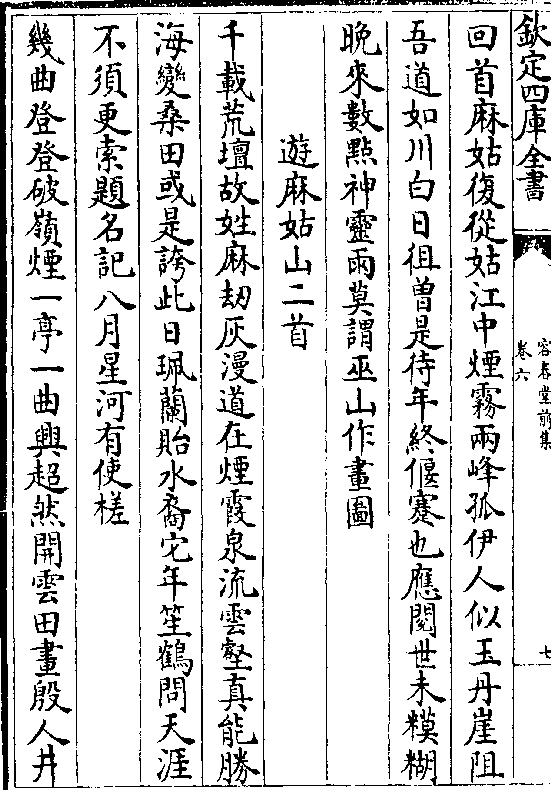 欽定四庫全書
容春堂前集
卷六
七
回首麻姑復從姑江中煙霧兩峰孤伊人似玉丹崖阻
吾道如川白日徂曽是待年終偃蹇也應閱世未糢糊
晩來數點神靈雨莫謂巫山作畫圖
遊麻姑山二首
千載荒壇故姓麻刼灰漫道在煙霞泉流雲壑真能勝
海變桑田或是誇此日珮蘭貽水裔它年笙鶴問天涯
不須更索題名記八月星河有使槎
幾曲登登破嶺煙一亭一曲興超然開雲田畫殷人井